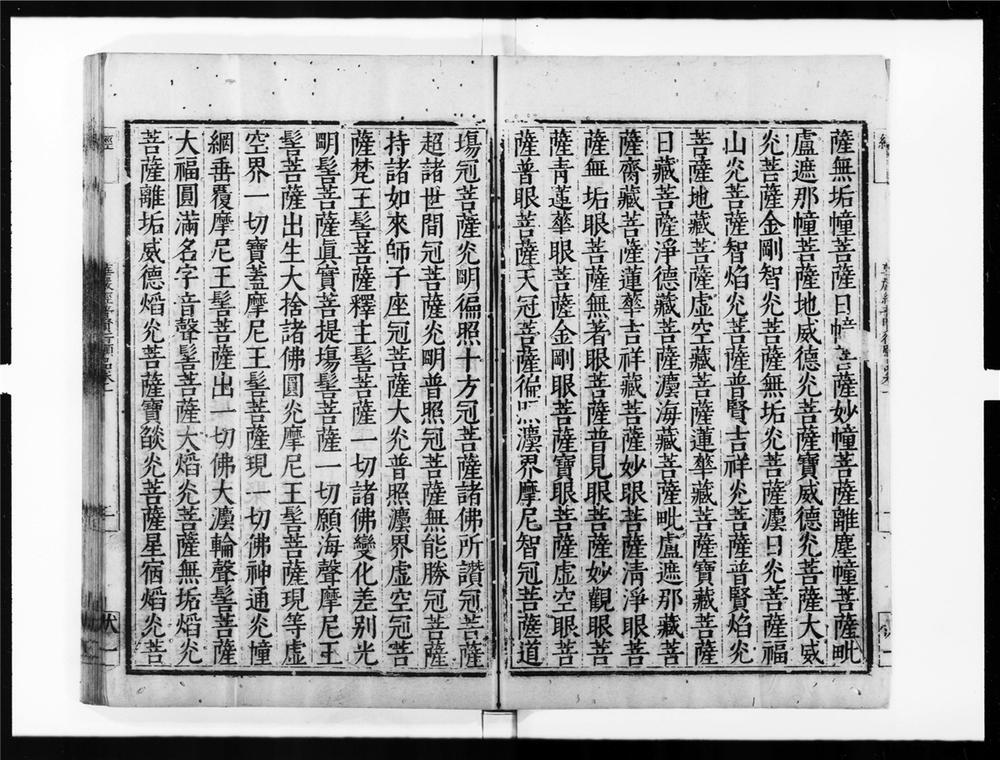 薩無垢幢菩薩日幢菩薩妙幢菩薩離塵幢菩薩毗
盧遮那幢菩薩地威德光菩薩寶威德光菩薩大威
光菩薩金剛智光菩薩無垢光菩薩灋日光菩薩福
山光菩薩智焰光菩薩普賢吉祥光菩薩普賢焰光
菩薩地藏菩薩虛空藏菩薩蓮華藏菩薩寶藏菩薩
日藏菩薩淨德藏菩薩灋海藏菩薩毗盧遮那藏菩
薩齋藏菩薩蓮華吉祥藏菩薩妙眼菩薩清淨眼菩
薩無垢眼菩薩無著眼菩薩普見眼菩薩妙觀眼菩
薩青蓮華眼菩薩金剛眼菩薩寶眼菩薩虛空眼菩
薩普眼菩薩天冠菩薩徧照灋界摩尼智冠菩薩道
塲冠菩薩光明徧照十方冠菩薩諸佛所讚冠菩薩
超諸世間冠菩薩光明普照冠菩薩無能勝冠菩薩
持諸如來師子座冠菩薩大光普照灋界虛空冠菩
薩梵王髻菩薩釋主髻菩薩一切諸佛變化差别光
明髻菩薩眞實菩提塲髻菩薩一切願海聲摩尼王
髻菩薩出生大捨諸佛圓光摩尼王髻菩薩現等虛
空界一切寶蓋摩尼王髻菩薩現一切佛神通光幢
網垂覆摩尼王髻菩薩出一切佛大灋輪聲髻菩薩
大福圓滿名字音聲髻菩薩大熖光菩薩無垢熖光
菩薩離垢威德熖光菩薩寶燄光菩薩星宿熖光菩
經
伏一